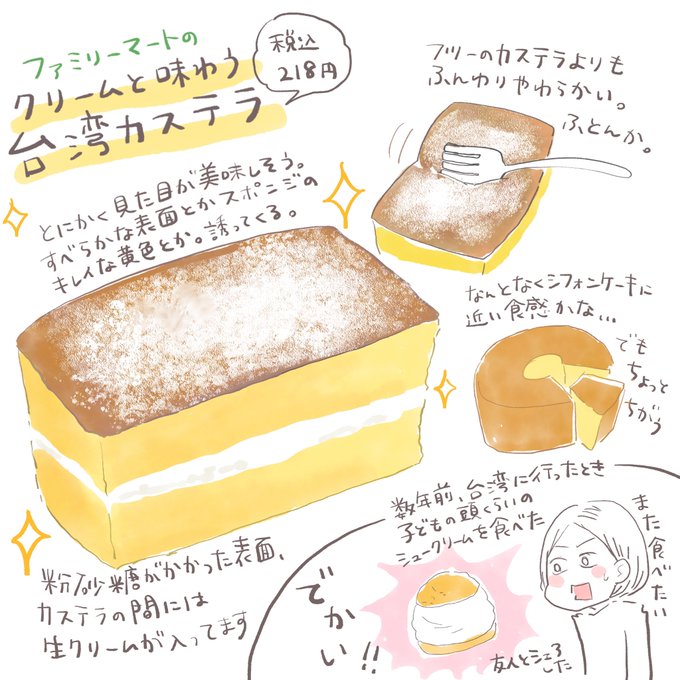 ファミリーマートの
クリームと味わう
台湾カステラ
税込
218円
フツーのカステラよりも
ふんわりやわらかい。
ふとんか。
とにかく見た目が美味しそう。
すべらかな表面とかスポンジの
キレイな黄色とか。誘ってくる。
なんとなくシフォンケーキに
近い食感かな...
でも
ちょっと
ちがう
粉砂糖がかかった表面、
カステラの間には
生クリームが入ってます
数年前、台湾に行ったとき
子どもの頭くらいの
シュークリームを食べた
でかい!!
また食べたい
友人とシェア
した